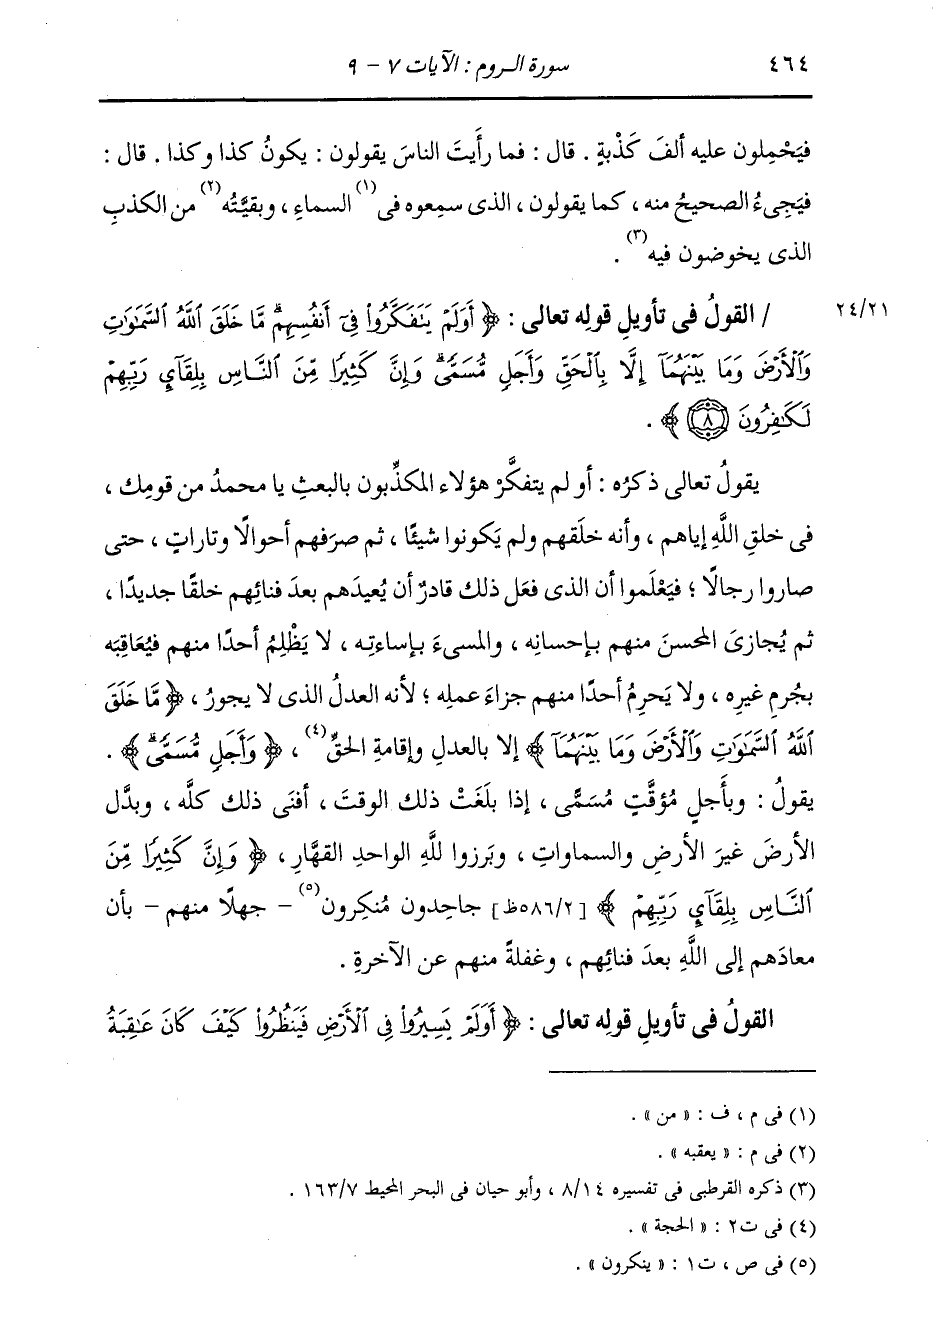 ٤٦٤ سورة الروم : الآيات ٧ - ٩
فيَحْمِلون عليه ألفَ كَذْبةٍ . قال : فما رأَيتَ الناسَ يقولون : يكونُ كذا وكذا . قال :
فيَجِىءُ الصحيحُ منه ، كما يقولون ، الذى سمِعوه فى(١) السماءِ ، وبقيَّتُه(٢) من الكذبِ
الذى يخوضون فيه(٣) .
٢٤/٢١ / القولُ فى تأويلِ قولِه تعالى : ﴿ أَوَلَمْ يَتَفَكَّرُوا۟ فِىٓ أَنفُسِهِمۗ مَّا خَلَقَ ٱللَّهُ ٱلسَّمَٰوَٰتِ
وَٱلْأَرْضَ وَمَا بَيْنَهُمَآ إِلَّا بِٱلْحَقِّ وَأَجَلٍ مُّسَمًّىۗ وَإِنَّ كَثِيرًا مِّنَ ٱلنَّاسِ بِلِقَآىِٕ رَبِّهِمْ
لَكَٰفِرُونَ ٨ ﴾ .
يقولُ تعالى ذكرُه : أو لم يتفكَّرْ هؤلاء المكذِّبون بالبعثِ يا محمدُ من قومِك ،
فى خلقِ اللَّهِ إياهم ، وأنه خلَقهم ولم يَكونوا شيئًا ، ثم صرَفهم أحوالًا وتاراتٍ ، حتى
صاروا رجالًا ؛ فيَعْلَموا أن الذى فعَل ذلك قادرٌ أن يُعيدَهم بعدَ فنائِهم خلقًا جديدًا ،
ثم يُجازىَ المحسنَ منهم بإحسانِه ، والمسىءَ بإساءتِه ، لا يَظْلِمُ أحدًا منهم فيُعَاقِبَه
بجُرمِ غيرِه ، ولا يَحرِمُ أحدًا منهم جزاءَ عملِه ؛ لأنه العدلُ الذى لا يجورُ ، ﴿ مَّا خَلَقَ
ٱللَّهُ ٱلسَّمَٰوَٰتِ وَٱلْأَرْضَ وَمَا بَيْنَهُمَآ ﴾ إلا بالعدلِ وإقامةِ الحقِّ(٤) ، ﴿ وَأَجَلٍ مُّسَمًّىۗ ﴾ .
يقولُ : وبأَجلٍ مُؤقَّتٍ مُسَمًّى ، إذا بلَغَتْ ذلك الوقتَ ، أفنَى ذلك كلَّه ، وبدَّل
الأرضَ غيرَ الأرضِ والسماواتِ ، وبَرزوا للَّهِ الواحدِ القهَّارِ ، ﴿ وَإِنَّ كَثِيرًا مِّنَ
ٱلنَّاسِ بِلِقَآىِٕ رَبِّهِمْ ﴾ [٥٨٦/٢ظ] جاحِدون مُنكِرون(٥) - جهلًا منهم - بأن
معادَهم إلى اللَّهِ بعدَ فنائِهم ، وغفلةً منهم عن الآخرةِ .
القولُ فى تأويلِ قولِه تعالى : ﴿ أَوَلَمْ يَسِيرُوا۟ فِى ٱلْأَرْضِ فَيَنظُرُوا۟ كَيْفَ كَانَ عَٰقِبَةُ
(١) فى م ، ف : « من » .
(٢) فى م : « يعقبه » .
(٣) ذكره القرطبى فى تفسيره ٨/١٤ ، وأبو حيان فى البحر المحيط ١٦٣/٧ .
(٤) فى ت٢ : « الحجة » .
(٥) فى ص ، ت١ : « ينكرون » .